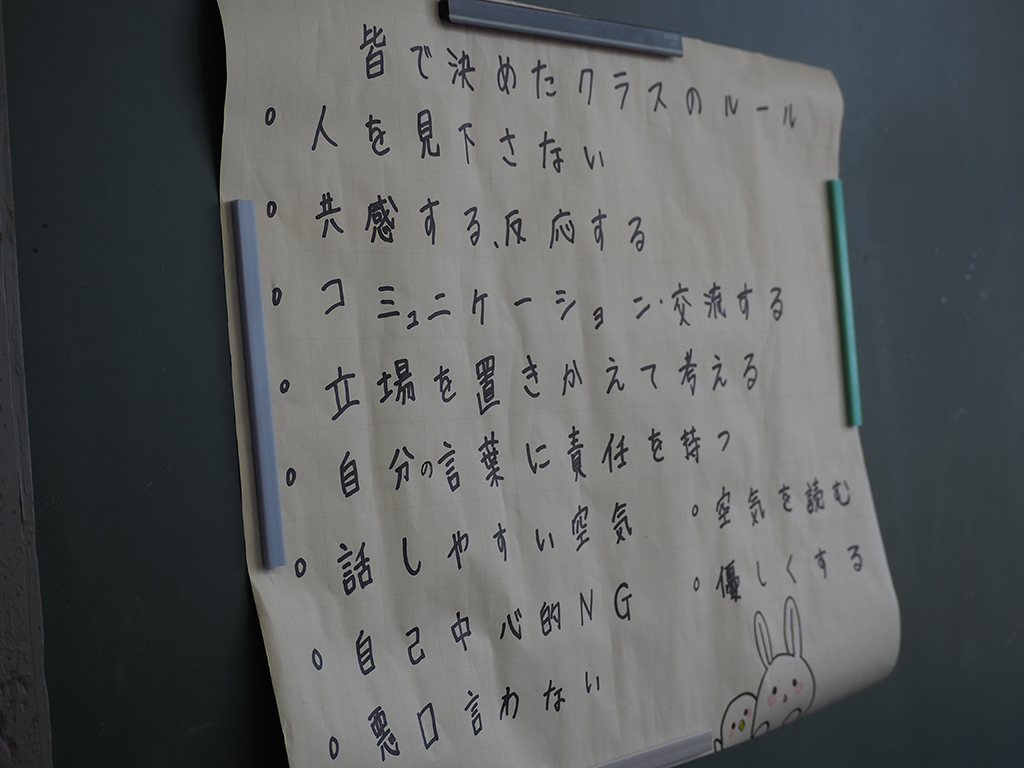 皆で決めたクラスのルール
○ 人を見下さない
○ 共感する、反応する
○ コミュニケーション・交流する
○ 立場を置きかえて考える
○ 自分の言葉に責任を持つ
○ 話しやすい空気
○ 自己中心的NG
○ 悪口言わない
○ 空気を読む
○ 優しくする